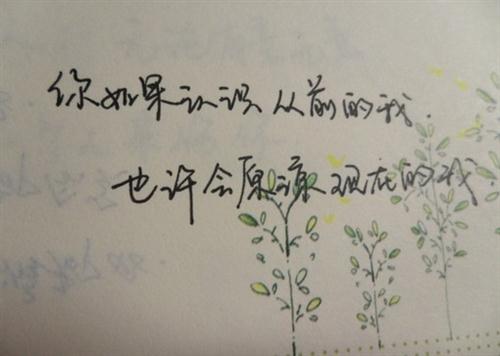 你如果认识从前的我.
也许会原谅现在的我